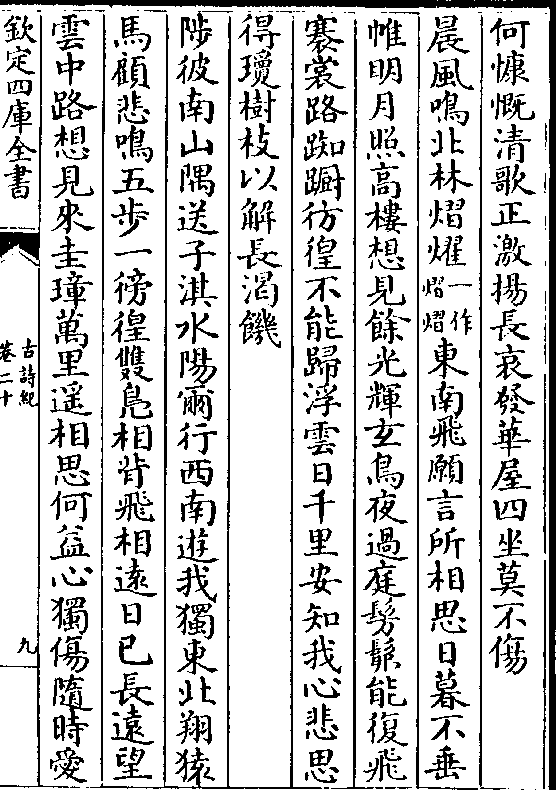 何慷慨清歌正激揚長哀發華屋四坐莫不傷
晨風鳴北林熠燿一作熠熠東南飛願言所相思日暮不垂
帷明月照高樓想見餘光輝玄鳥夜過庭髣髴能復飛
褰裳路踟蹰彷徨不能歸浮雲日千里安知我心悲思
得瓊樹枝以解長渴饑
陟彼南山隅送子淇水陽爾行西南遊我獨東北翔猿
馬顧悲鳴五步一徬徨雙鳧相背飛相遠日已長遠望
雲中路想見來圭璋萬里遥相思何益心獨傷隨時愛
欽定四庫全書
古詩紀
卷二十
九